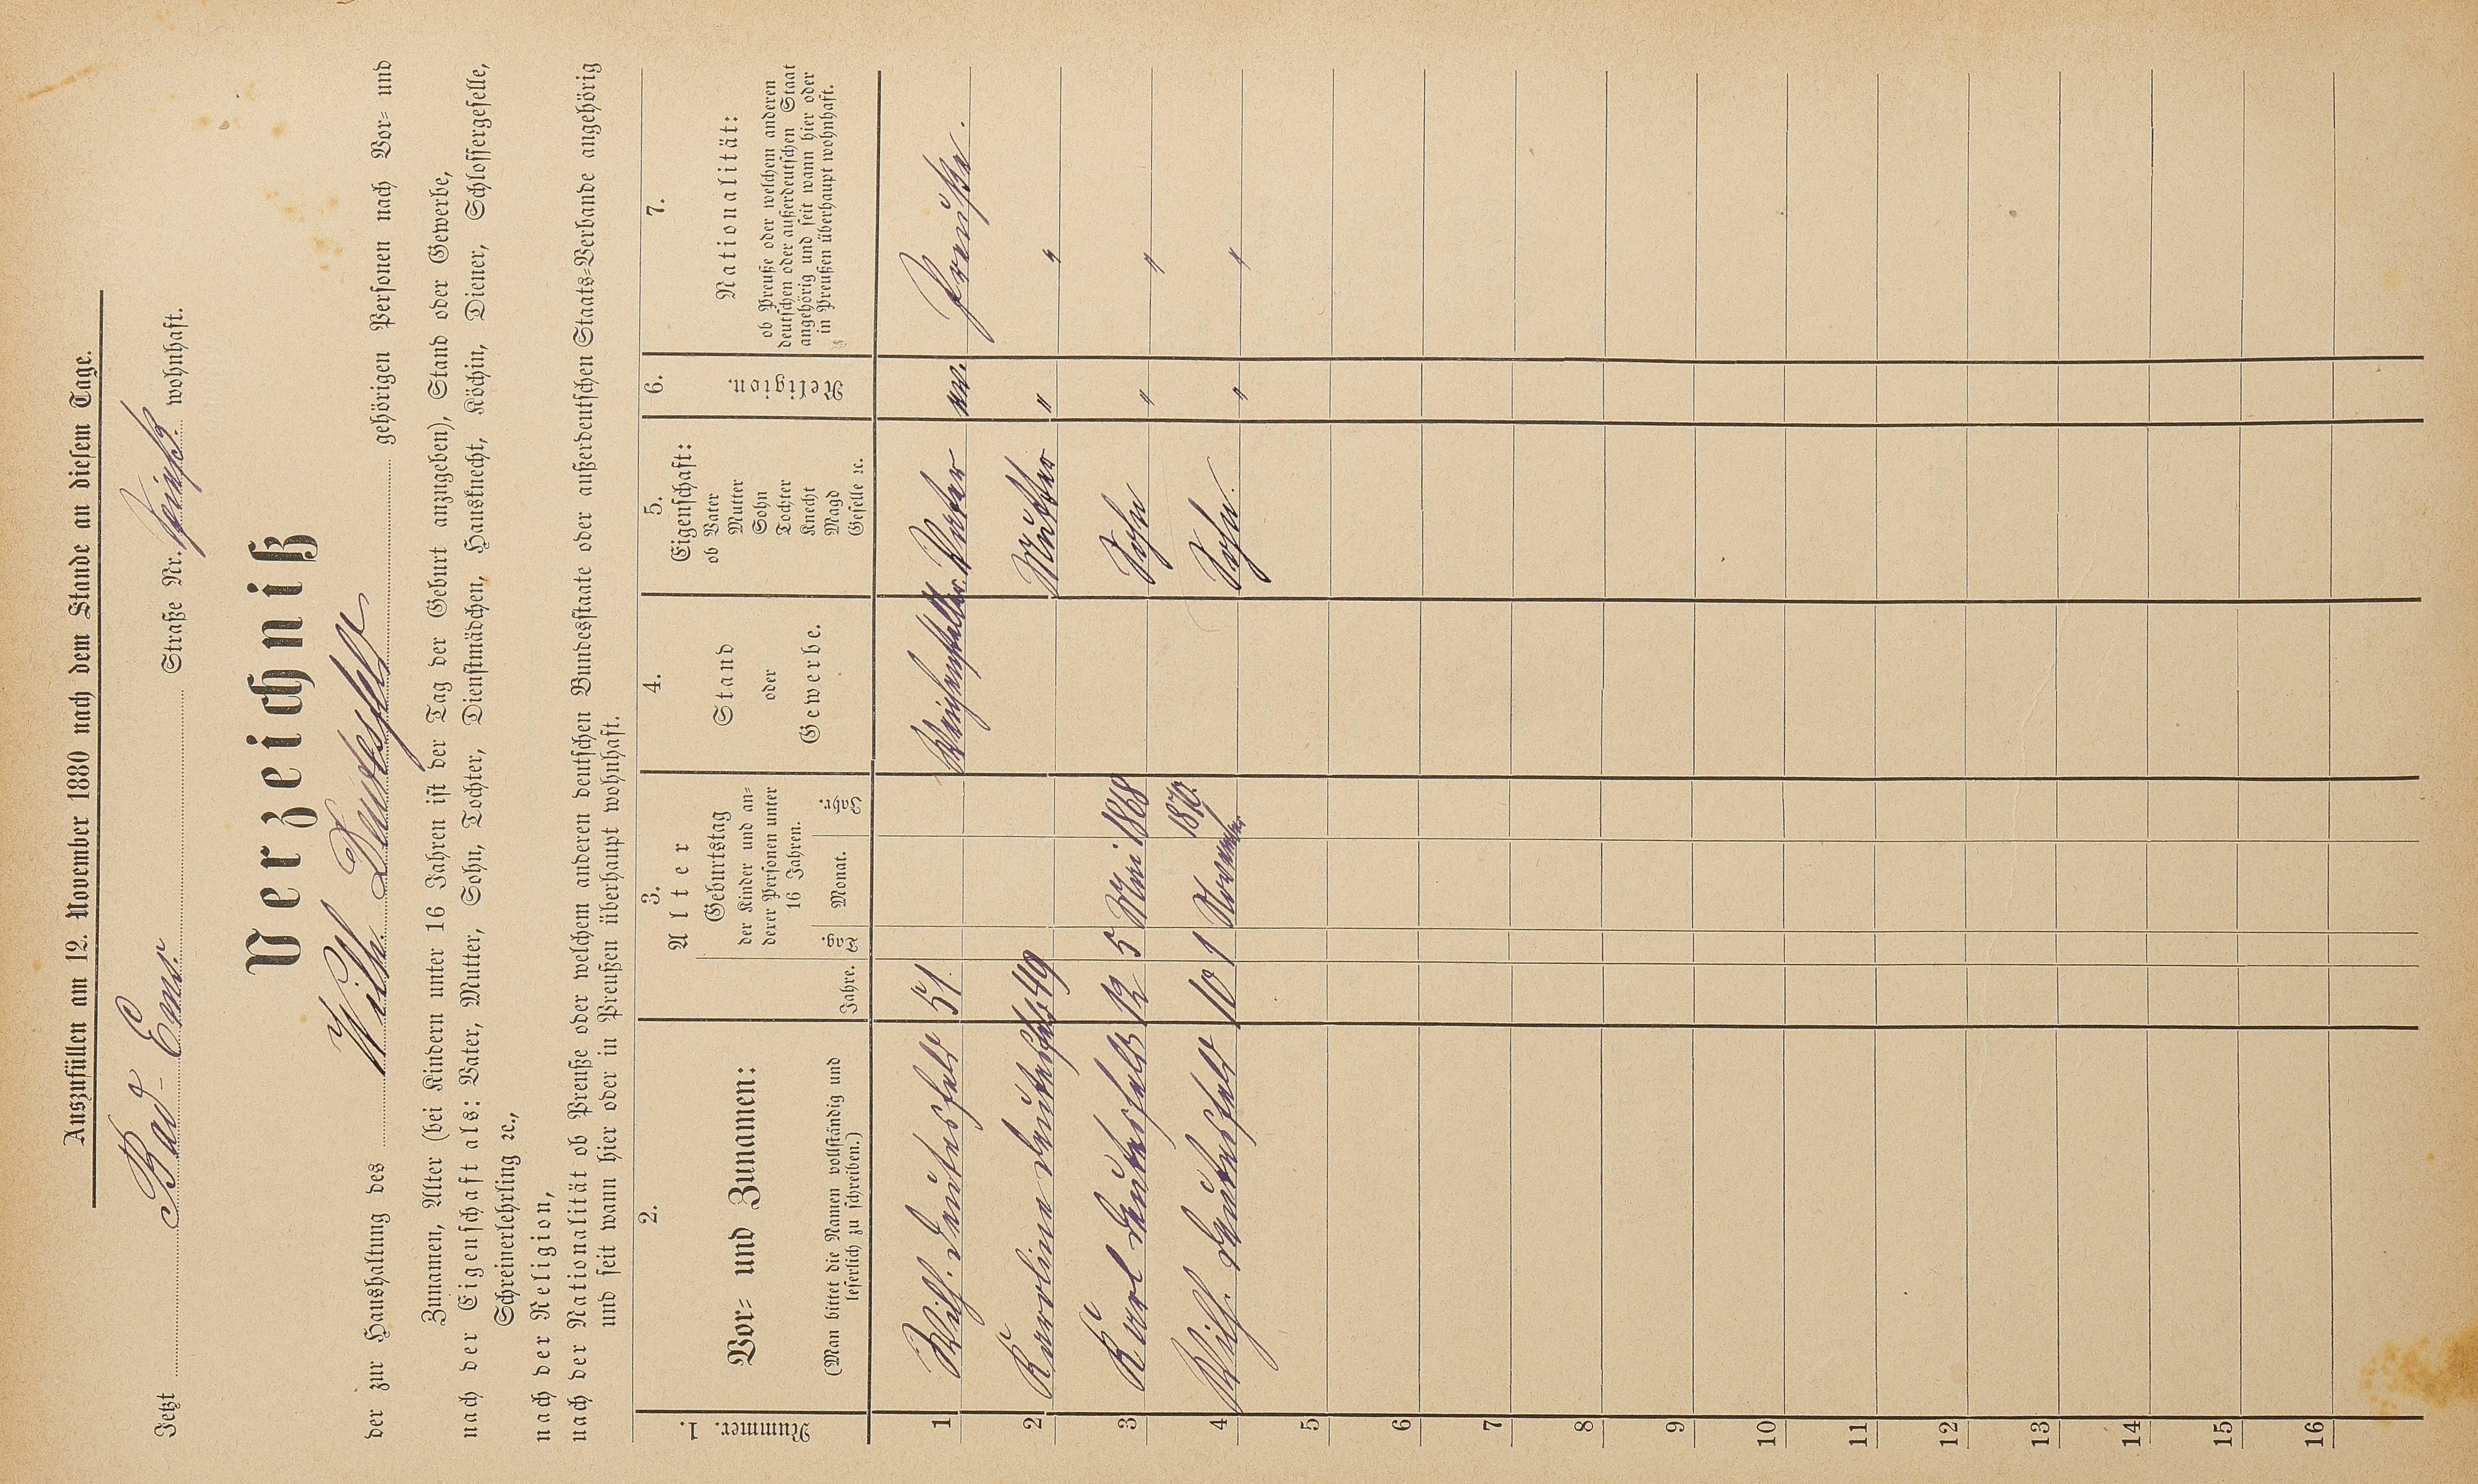 Auszufüllen am 12. November 1880 nach dem Stande an diesem Tage.
Jetzt Bad-Ems. Straße Nr. wohnhaft.
Verzeichniß
der zur Haushaltung des Wilh. Deutesfeld gehörigen Personen nach Vor- und
Zunamen, Alter (bei Kindern unter 16 Jahren ist der Tag der Geburt anzugeben), Stand oder Gewerbe,
nach der Eigenschaft als: Vater, Mutter, Sohn, Tochter, Dienstmädchen, Hausknecht, Köchin, Diener, Schlossergeselle,
Schreinerlehrling ꝛc.,
nach der Religion,
nach der Nationalität ob Preuße oder welchem anderen deutschen Bundesstaate oder außerdeutschen Staats-Verbande angehörig
und seit wann hier oder in Preußen überhaupt wohnhaft.
1.
Nummer.
2.
Vor- und Zunamen:
(Man bittet die Namen vollständig und
leserlich zu schreiben.)
3.
Alter
Jahre.
Geburtstag
der Kinder und an-
derer Personen unter
16 Jahren.
Tag. Monat. Jahr.
4.
Stand
oder
Gewerbe.
5.
Eigenschaft:
ob Vater
Mutter
Sohn
Tochter
Knecht
Magd
Geselle ꝛc.
6.
Religion.
7.
Nationalität:
ob Preuße oder welchem anderen
deutschen oder außerdeutschen Staat
angehörig und seit wann hier oder
in Preußen überhaupt wohnhaft.
1 Wilh. Deutesfeld 51 Weichensteller Vater ev. Preuße.
2 Karoline Deutesfeld 49 Mutter " "
3 Karl Deutesfeld 12 5 Mai 1868 Sohn " "
4 Wilh. Deutesfeld 10 1 November 1870. Sohn. " "
5
6
7
8
9
10
11
12
13
14
15
16